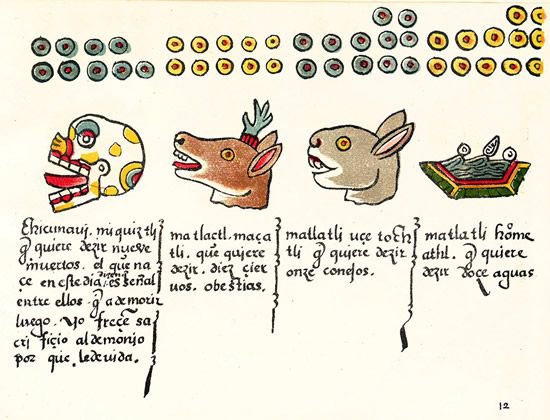 Chicunavi. miquiztli
q̃ quiere dezir nueve
muertos. el que na
ce en este dia, es señal
entre ellos. q̃ a de morir
luego. yo frecẽ sa
cri fiçio al demonjo
por que. le de vida.
matlactl. maça
tli. que quiere
dezir. diez çier
uos. obestias.
matlatli uçe toch
tli q̃ quiere dezir
onze conejos.
matlatli hõme
athl. q̃ quiere
dezir doçe aguas.
12